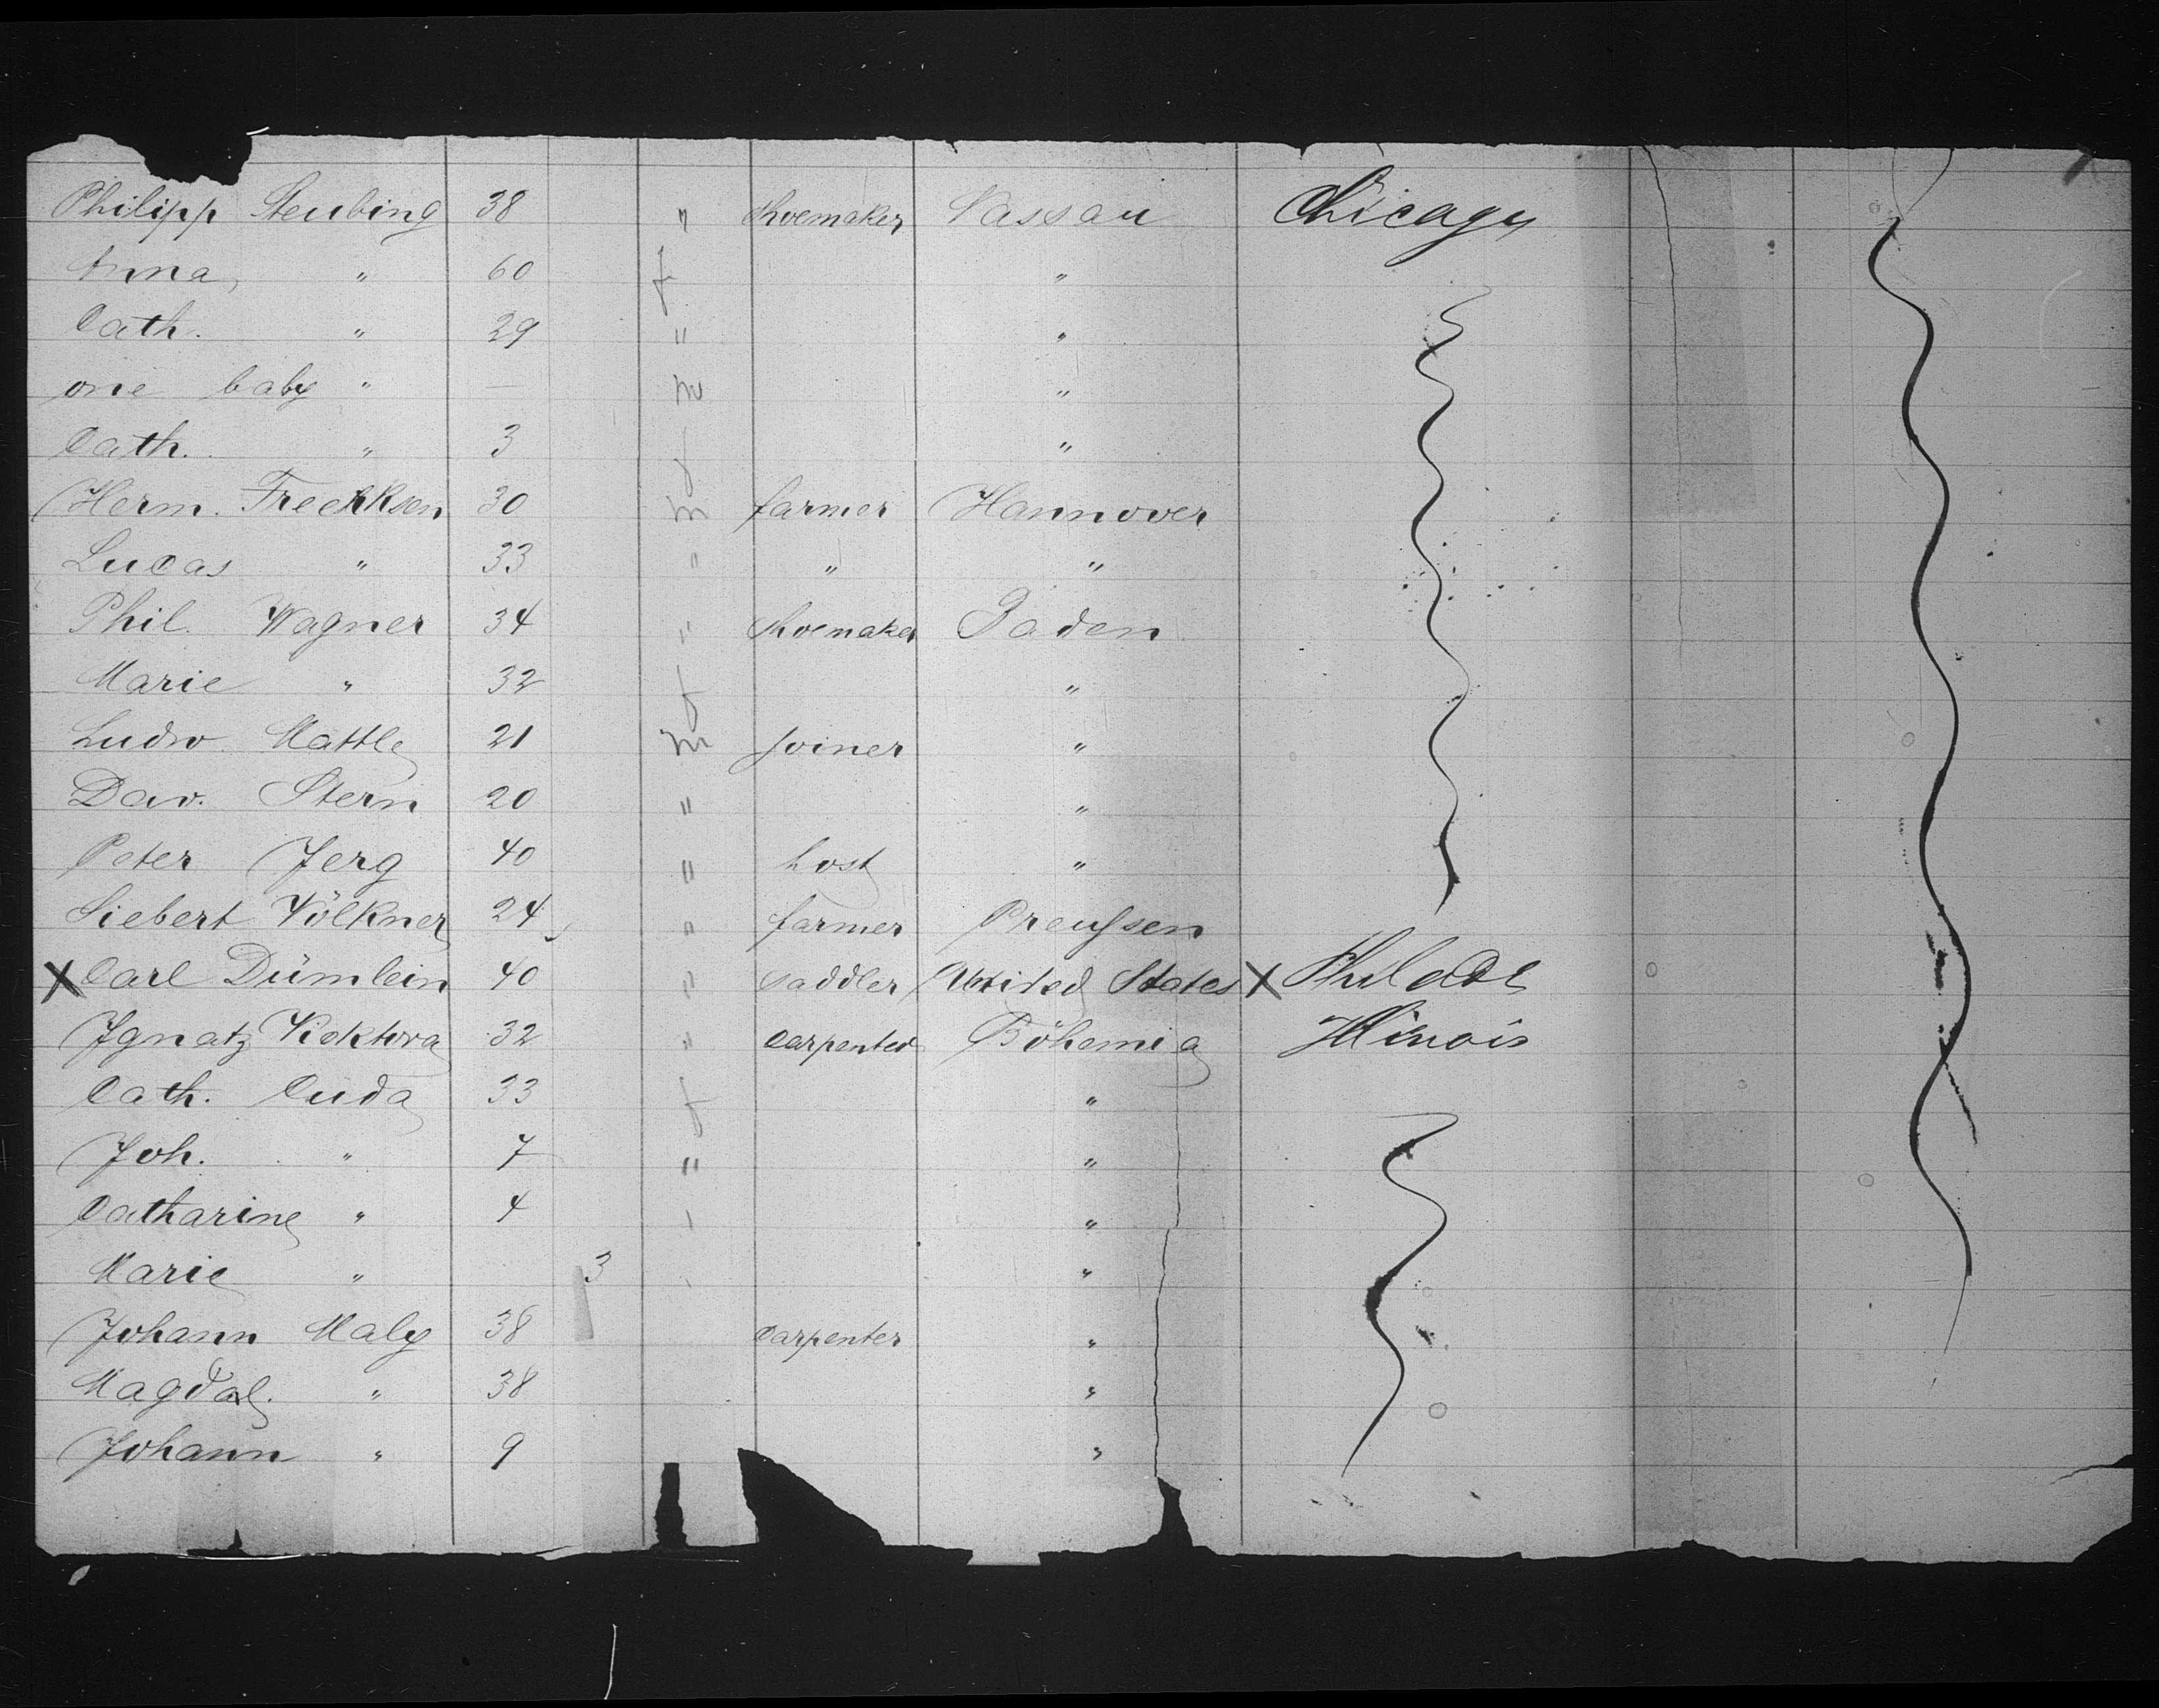 Philipp Steubing 38 " Shoemaker Nassau Chicago
Anna, " 60 f "
Cath. " 29 " "
one baby " — m "
Cath. " 3 f "
Herm. Frerkksen 30 m farmer Hannover
Lucas " 33 " " "
Phil. Wagner 34 " Shoemaker Baden
Marie " 32 f "
Ludw. Mattle 21 m Joiner "
Dav. Stern 20 " "
Peter Jerg 40 " host "
Siebert Völkner 24 " farmer Preussen
X Carl Dümlein 40 " Saddler United States X Philade
Ignatz Koktwa 32 " Carpenter Böhemia Illinois
Cath. Cuda 33 f "
Joh. " 7 " "
Catharine " 4 "
Marie " 3 "
Johann Maly 38 Carpenter "
Magdal. " 38 "
Johann " 9 "